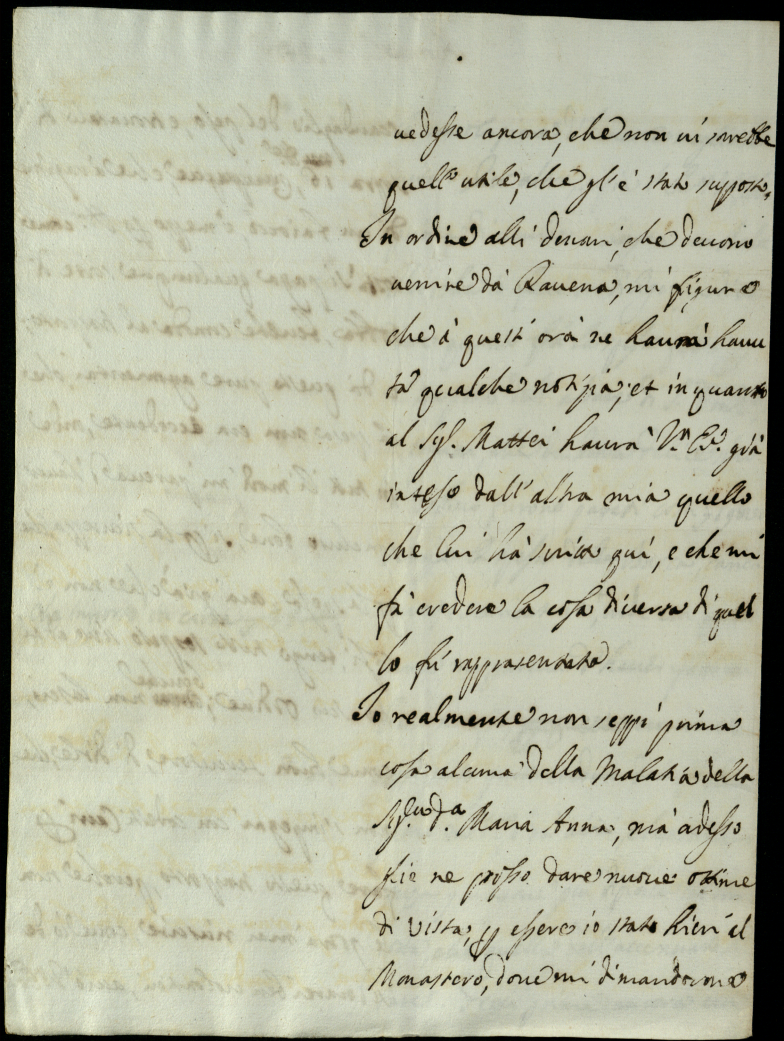 uedesse ancora, che non ui sarebbe
quell'utile, che gl'è stato supposto.
In ordine alli denari, che deuono
uenire da Rauena, mi figuro
che à quest'ora ne haurà hauu
ta qualche notizia; et in quanto
al Sig.r Mattei haurà V.ra Ecc.a già
inteso dall'altra mia quello
che lui hà scritto quí, e che mi
fà credere la cosa diuersa di quel
lo fú rappresentata.
Io realmente non seppi prima
cosa alcuna della Malatia della
Sig.ra D.a Maria Anna, mà adesso
glie ne posso dare nuoue ottime
di uista, p essere io stato hieri al
Monastero, doue mi dimandorono